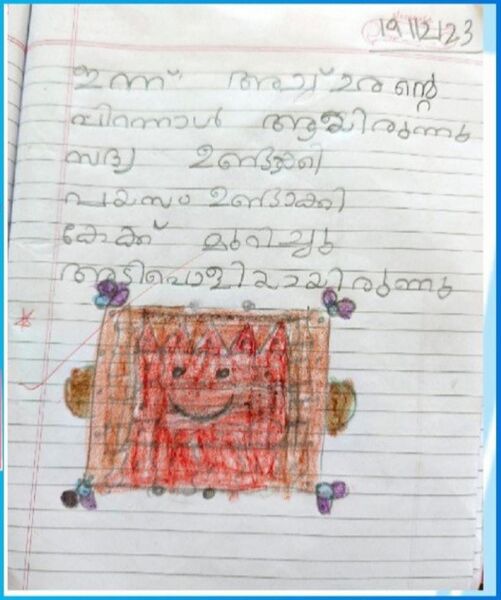 19/12/23
ഇന്ന് അച്ചന്റെ
പിറന്നാൾ ആയിരുന്നു
സദ്യ ഉണ്ടാക്കി
പയസം ഉണ്ടാക്കി
കേക്ക് മുറിച്ചു
അടിപൊളിയായിരുന്നു